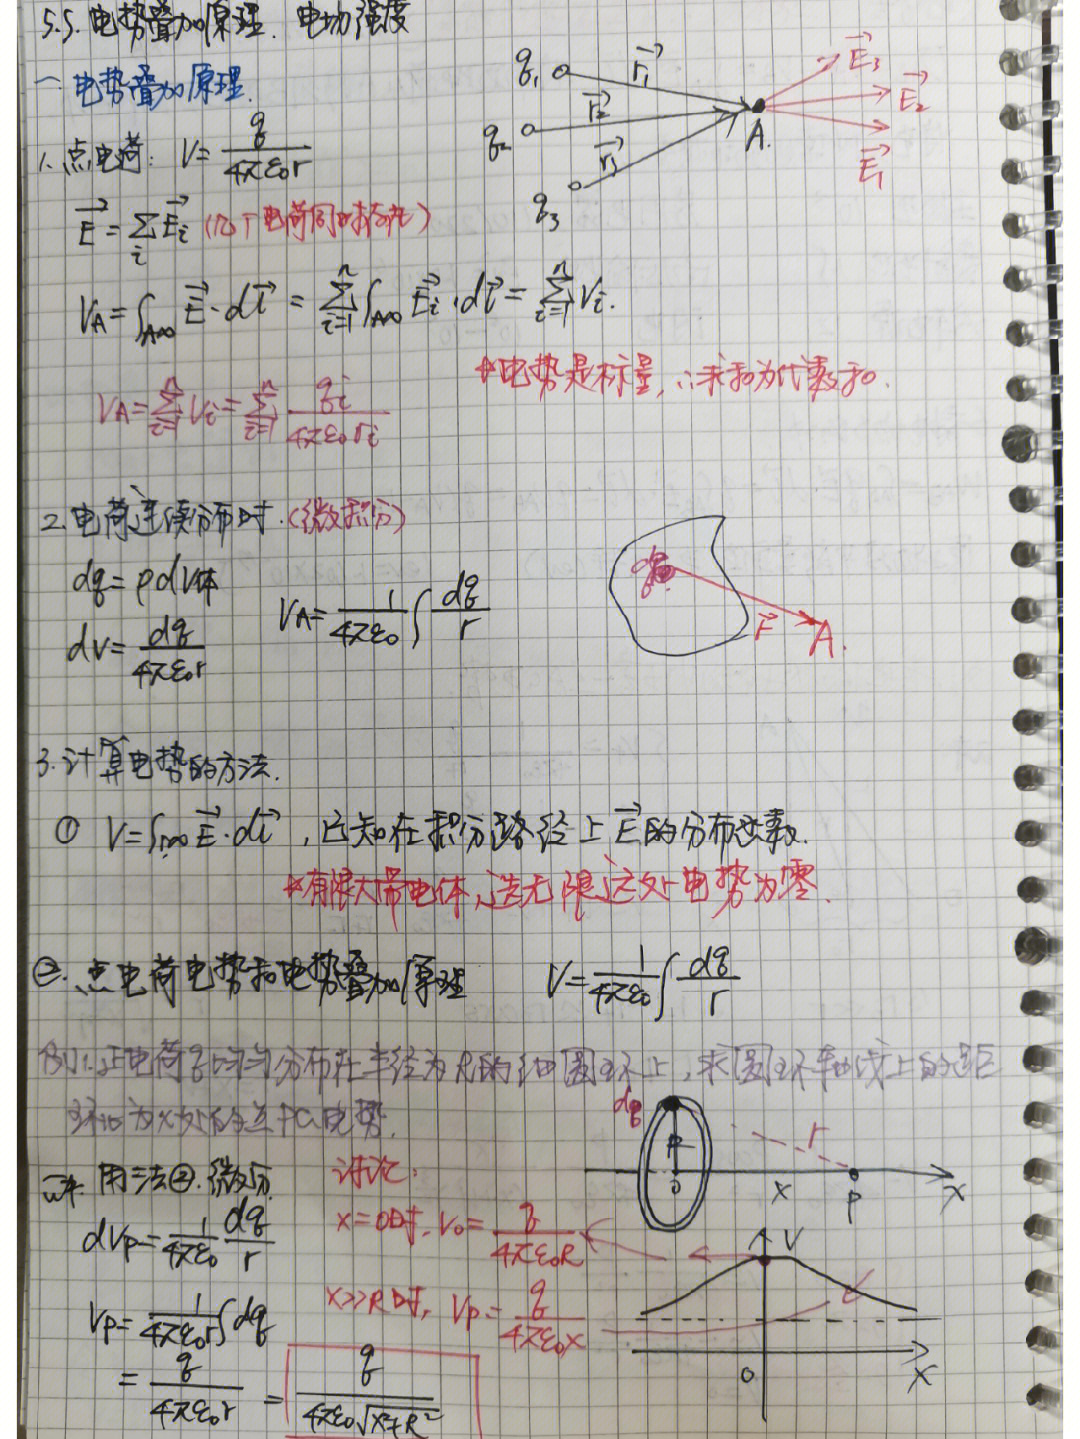 5.5. 电势叠加原理. 电场强度
一 电势叠加原理.
q₁ r₁→ E₃→
q₂ r₂→ A. E₂→
q₃ r₃→ E₁→
1. 点电荷: V = q/(4πε₀r)
E→ = ∑ᵢ Eᵢ→ (几个电荷同时存在)
V_A = ∫_A∞ E→·dl→ = ∑ᵢ₌₁ⁿ ∫_A∞ Eᵢ→·dl→ = ∑ᵢ₌₁ⁿ Vᵢ.
*电势是标量, ∴求和为代数和.
V_A = ∑ᵢ₌₁ⁿ Vᵢ = ∑ᵢ₌₁ⁿ qᵢ/(4πε₀rᵢ)
2. 电荷连续分布时. (微积分)
dq = ρdV体
dV = dq/(4πε₀r)
V_A = 1/(4πε₀) ∫ dq/r
dq r→ A.
3. 计算电势的方法.
① V = ∫_A∞ E→·dl→, 已知在积分路径上E→的分布函数.
*有限大带电体, 选无限远处电势为零.
②. 点电荷电势和电势叠加原理 V = 1/(4πε₀) ∫ dq/r
例1. 正电荷q均匀分布在半径为R的细圆环上, 求圆环轴线上的距
环心为x处的点P的电势.
dq R r
o x P x
解. 用法②. 微分
dVp = 1/(4πε₀) dq/r
Vp = 1/(4πε₀r) ∫dq
= q/(4πε₀r) = q/(4πε₀√(x²+R²))
讨论.
x=0时, V₀ = q/(4πε₀R)
x>>R时, Vp = q/(4πε₀x)
V
o x